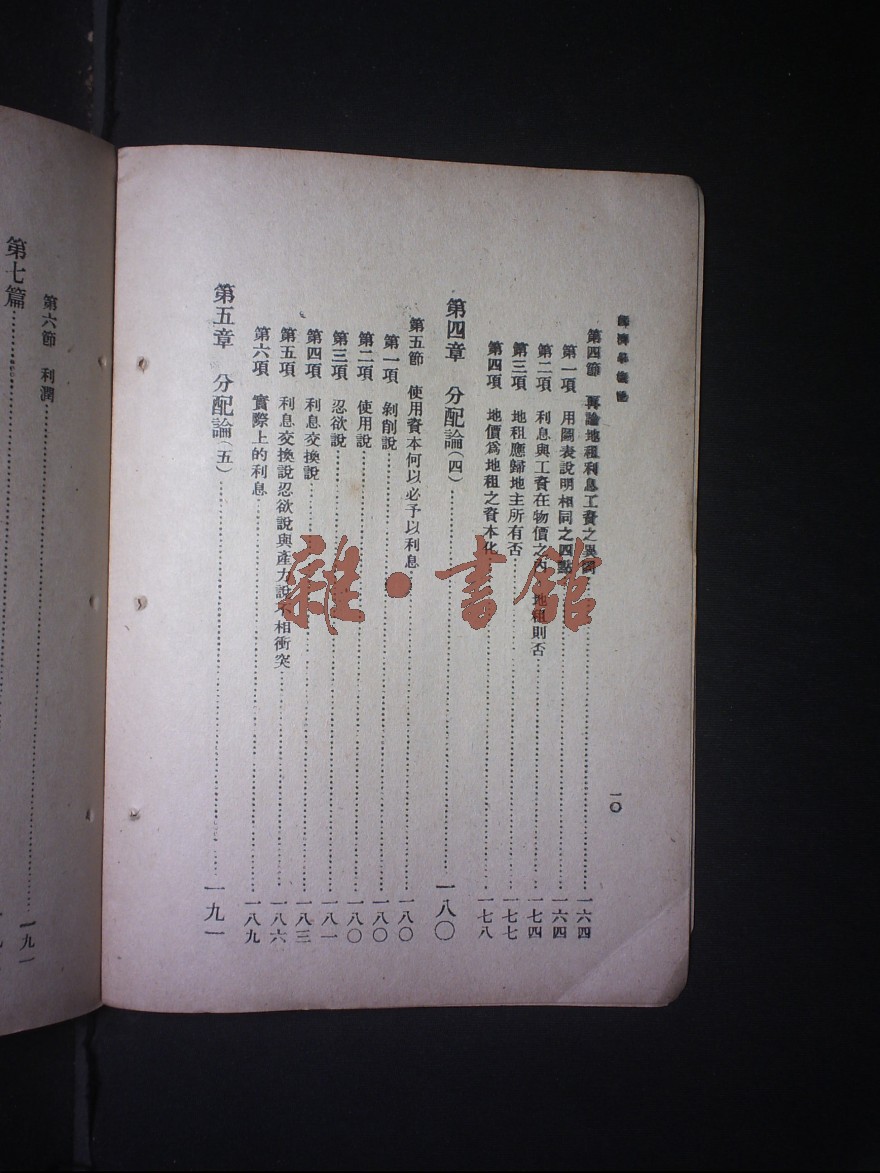 第四節 再論地租利息工資之異同 一六四
第一項 用圖表說明相同之四點 一六四
第二項 利息與工資在物價之內 地租則否 一七四
第三項 地租應歸地主所有否 一七七
第四項 地價爲地租之資本化 一七八
第四章 分配論(四) 一八〇
第五節 使用資本何以必予以利息 一八〇
第一項 剝削說 一八〇
第二項 使用說 一八〇
第三項 忍欲說 一八一
第四項 利息交換說 一八三
第五項 利息交換說忍欲說與產力說不相衝突 一八六
第六項 實際上的利息 一八九
第五章 分配論(五) 一九一
一〇
第六節 利潤 一九一
第七篇
雜·書館